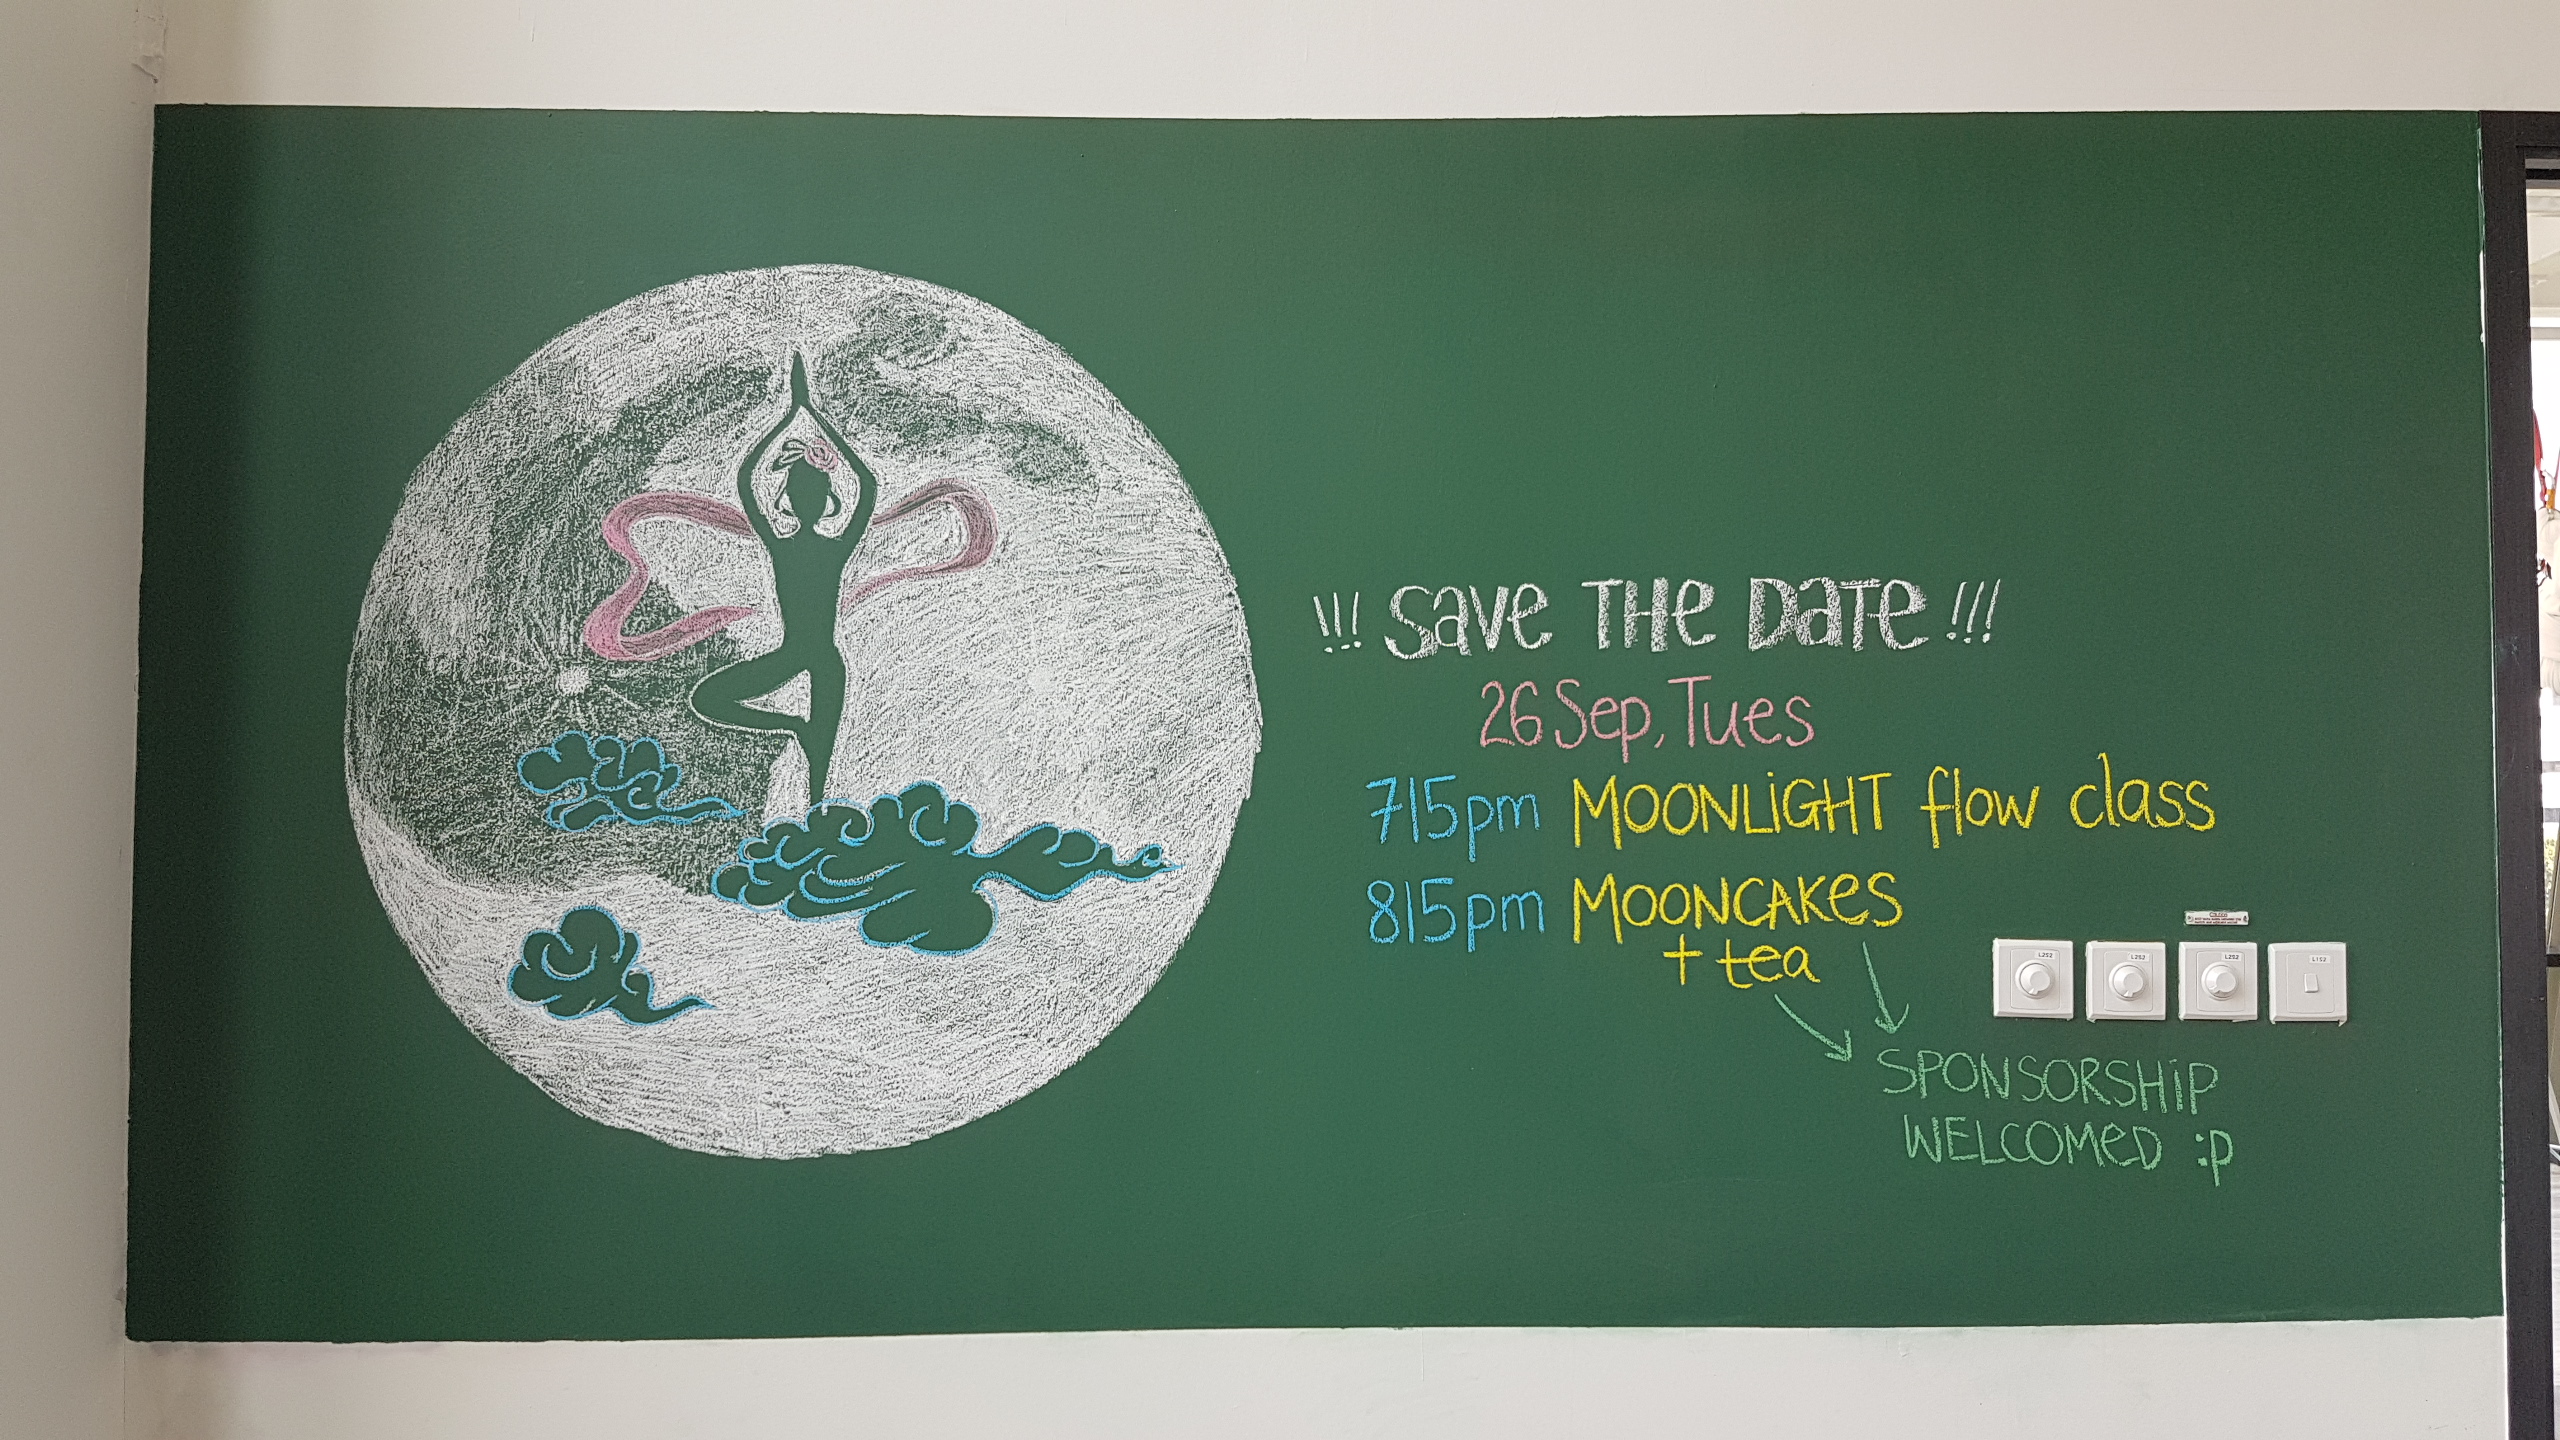 !!! Save THe DaTe !!!
26 Sep, Tues
715pm MOONLiGHT flow class
815pm MOONCAKes
+ tea
SPONSORSHiP
WELCOMeD :p
L2S2
L2S2
L2S2
L1S2